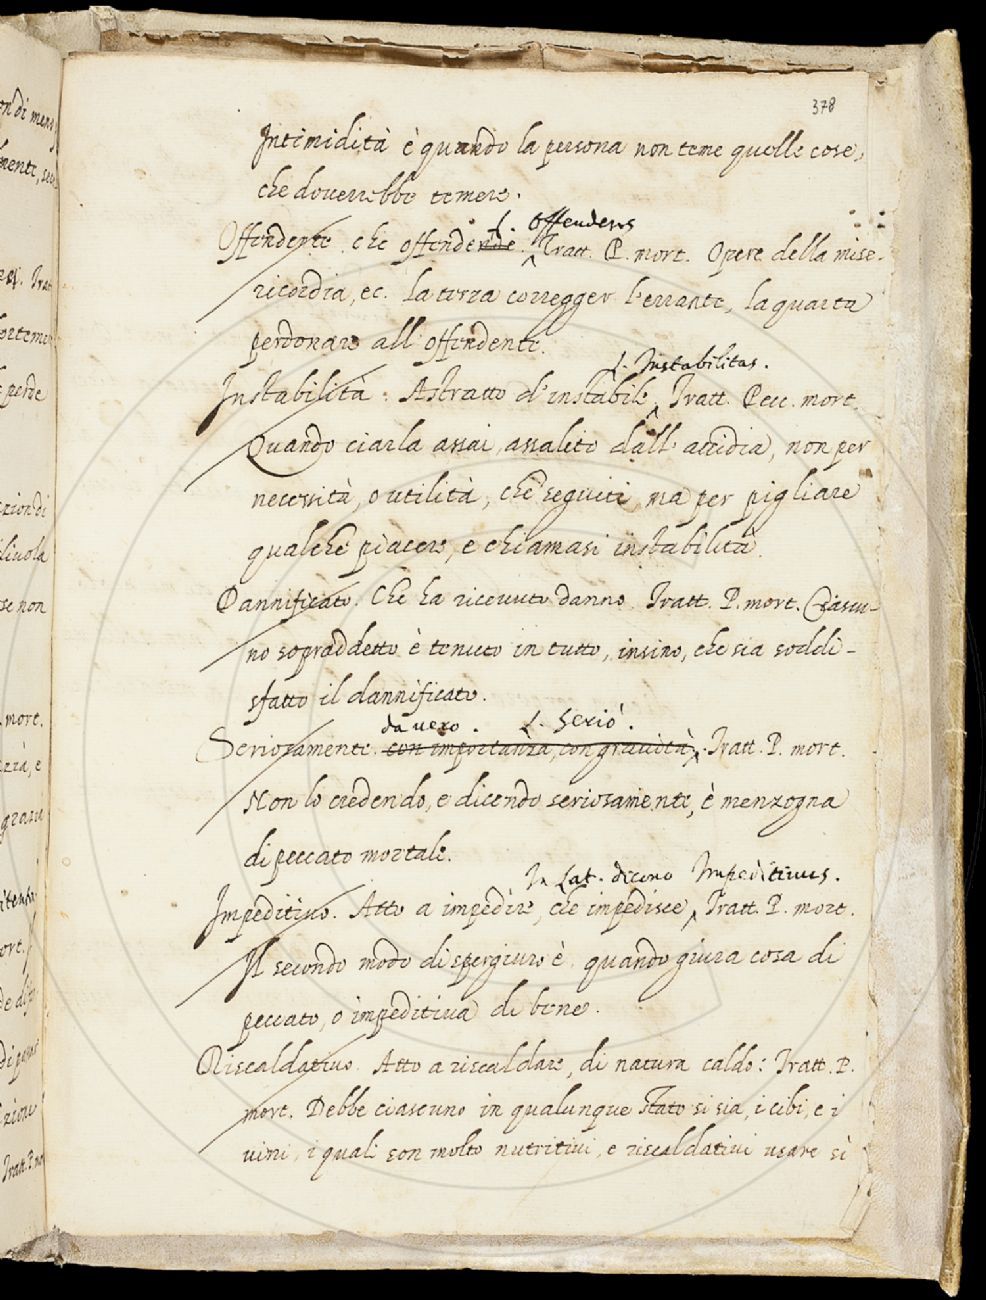 378
Intimidità è quando la persona non teme quelle cose,
che doverrebbe temere.
L. Offendens
Offendente. che offendende. Tratt. P. mort. Opere della mise-
ricordia, ec. la terza corregger l'errante, la quarta
perdonare all'offendente.
L. Instabilitas.
Instabilità. Astratto d'instabile, Tratt. Pecc. mort.
Quando ciarla assai, assalito dall'accidia, non per
necessità, o utilità, che seguiti, ma per pigliare
qualche piacere, e chiamasi instabilità.
Dannificato. Che ha ricevuto danno. Tratt. P. mort. Ciascu-
no sopraddetto è tenuto in tutto, insino, che sia soddi-
sfatto il dannificato.
da vero. L. Seriò.
Seriosamente. con importanza, con gravità, Tratt. P. mort.
Non lo credendo, e dicendo seriosamente, è menzogna
di peccato mortale.
In Lat. dicono Impeditivus.
Impeditivo. Atto a impedire, che impedisce, Tratt. P. mort.
Il secondo modo di spergiuro è quando giura cosa di
peccato, o impeditiva di bene.
Riscaldativo. Atto a riscaldare, di natura caldo: Tratt. P.
mort. Debbe ciascuno in qualunque stato si sia, i cibi, e i
vini, i quali son molto nutritivi, e riscaldativi usare sì